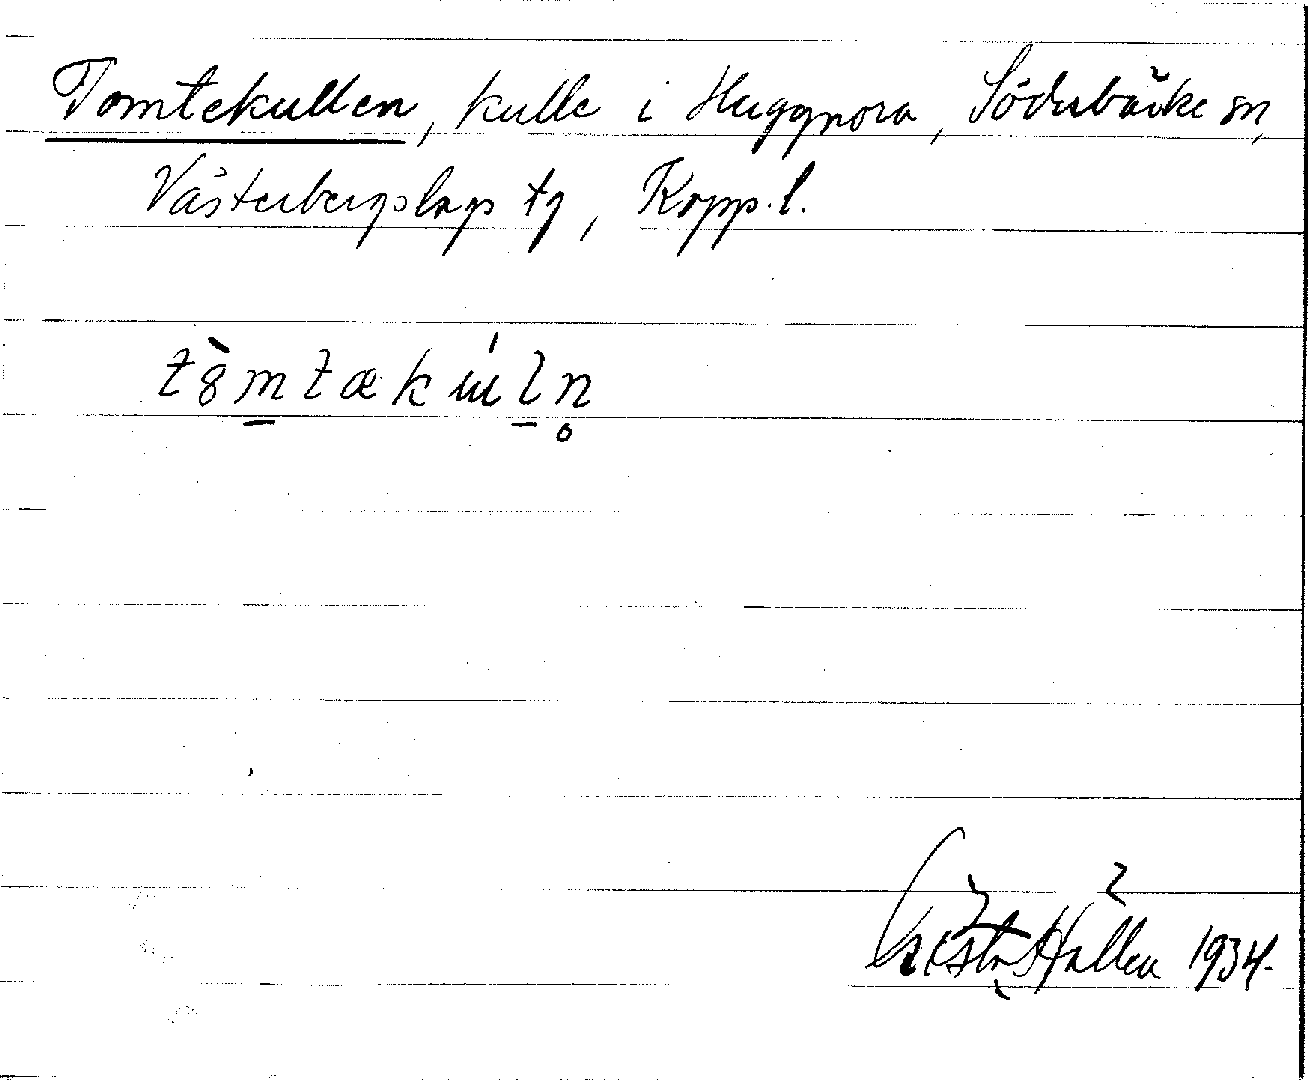 Tomtekullen, kulle i Huggnora, Söderbärke sn,
Västerbergslags tg, Kopp. l.
tȣ̀mtækúln̥
Gösta Hallén 1934.